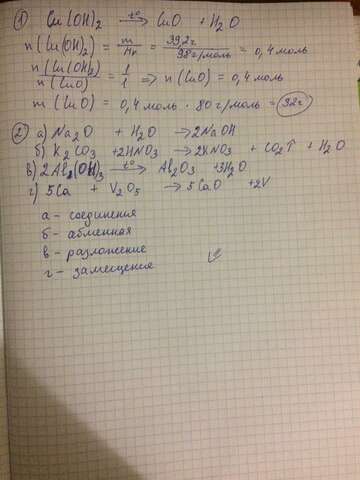 ① Cu(OH)₂ —t°→ CuO + H₂O
n(Cu(OH)₂) = m/Mr = 39,2г / 98г/моль = 0,4 моль
n(Cu(OH)₂) / n(CuO) = 1/1 ⇒ n(CuO) = 0,4 моль
m(CuO) = 0,4 моль · 80 г/моль = 32г
② а) Na₂O + H₂O → 2NaOH
б) K₂CO₃ + 2HNO₃ → 2KNO₃ + CO₂↑ + H₂O
в) 2Al(OH)₃ —t°→ Al₂O₃ + 3H₂O
г) 5Ca + V₂O₅ → 5CaO + 2V
а - соединения
б - абменная
в - разложение
г - замещения